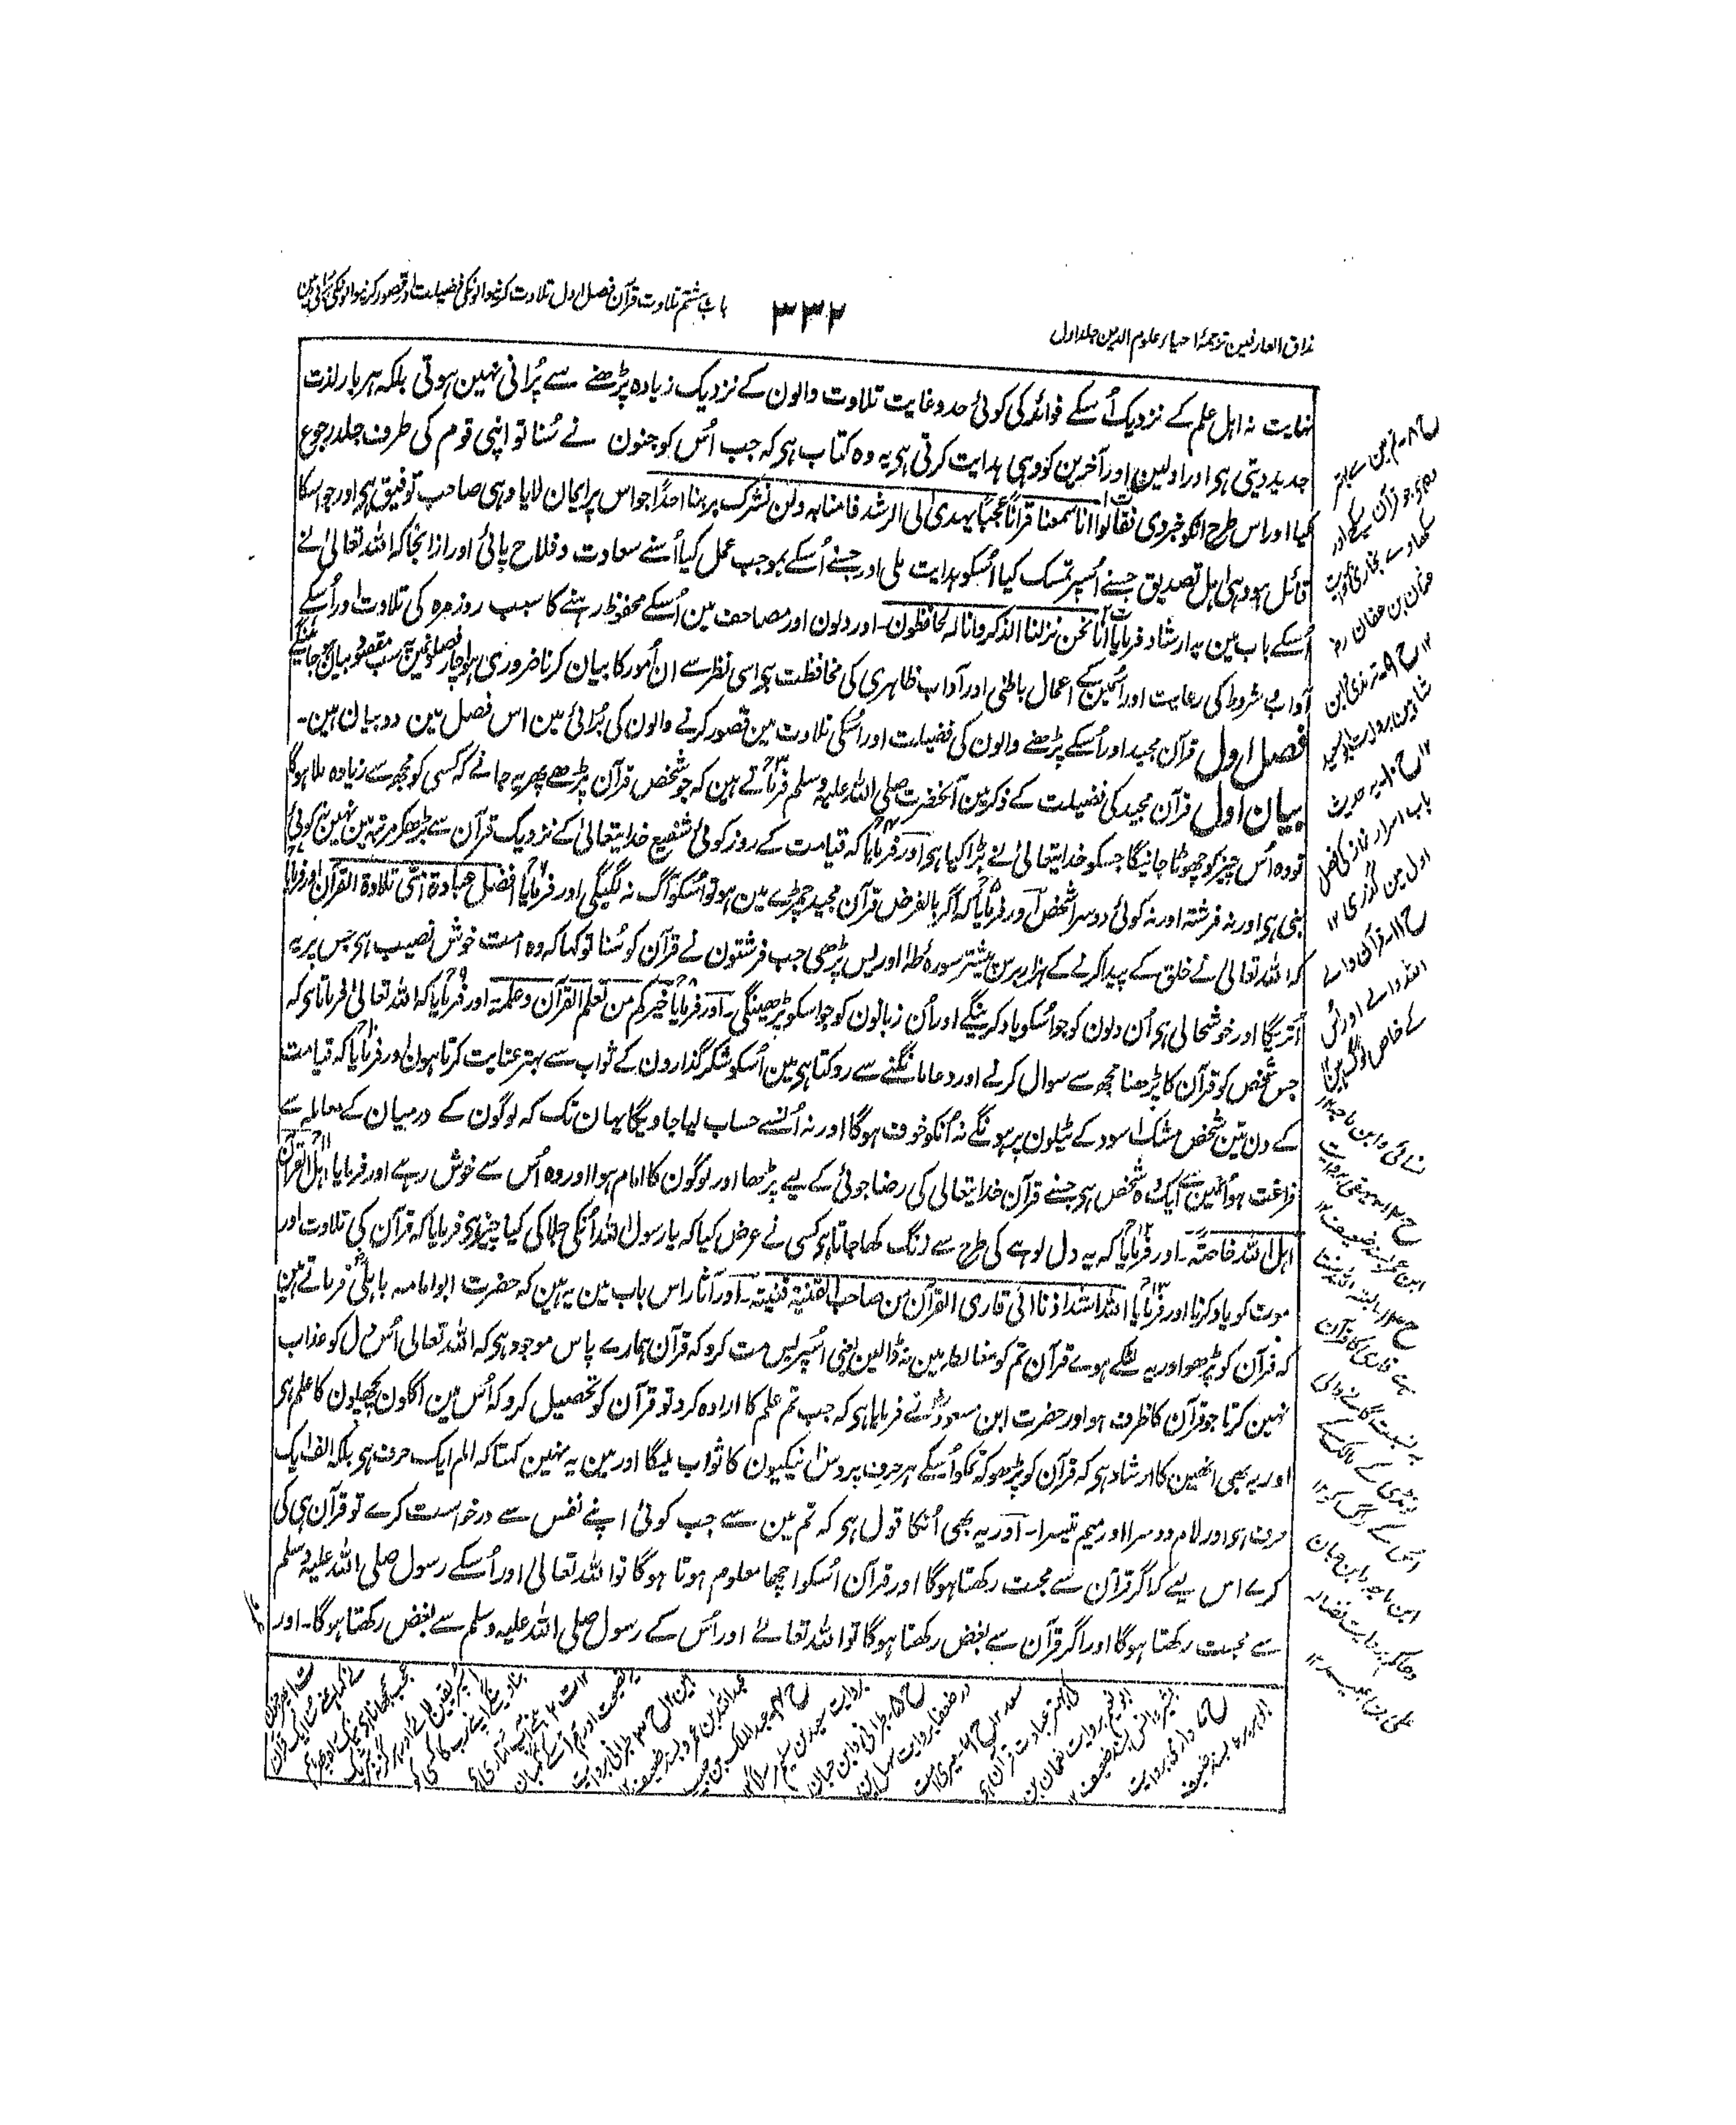 مذاق العارفین ترجمۂ احیاء علوم الدین جلد اول
۳۳۲
باب ہشتم تلاوت قرآن فصل اول تلاوت کرنیوالونکی فضیلت اور قصور کرنیوالونکی برائی مین
نہایت نہ اہل علم کے نزدیک اُسکے فوائد کی کوئی حد و غایت تلاوت والون کے نزدیک زیادہ پڑھنے سے پُرانی نہین ہوتی بلکہ ہر بار لذت
جدید دیتی ہی اور اولین اور آخرین کو وہی ہدایت کرتی ہی یہ وہ کتاب ہی کہ جب اُس کو جنون نے سُنا تو اپنی قوم کی طرف جلد رجوع
کیا اور اس طرح انکو خبر دی فقالوا انا سمعنا قرآنًا عجبًا یہدی الی الرشد فامنا بہ ولن نشرک بربنا احدًا جو اس پر ایمان لایا وہی صاحب توفیق ہی اور جو اسکا
قائل ہو وہی اہل تصدیق جسنے اُسپر تمسک کیا اُسکو ہدایت ملی اور جسنے اُسکے بموجب عمل کیا اُسنے سعادت و فلاح پائی اور ازانجا کہ اللہ تعالیٰ نے
اُسکے باب مین یہ ارشاد فرمایا انا نحن نزلنا الذکر وانا لہ لحافظون۔ اور دلون اور مصاحف مین اُسکے محفوظ رہنے کا سبب روز مرہ کی تلاوت اور اُسکے
آداب و شروط کی رعایت اور اسمین کے اعمال باطنی اور آداب ظاہری کی محافظت ہی اسی نظر سے ان اُمور کا بیان کرنا ضروری ہوا چار فصلونمین یہ سب مقصود بیان ہو جائینگے
فصل اول قرآن مجید اور اُسکے پڑھنے والون کی فضیلت اور اُسکی تلاوت مین قصور کرنے والون کی بُرائی مین اس فصل مین دو بیان ہین۔
بیان اول قرآن مجید کی فضیلت کے ذکر مین آنحضرت صلی اللہ علیہ وسلم فرماتے ہین کہ جو شخص قرآن پڑھے پھر یہ جانے کہ کسی کو مجھ سے زیادہ ملا ہوگا
تو وہ اُس چیز کو چھوٹا جانیگا جسکو خدایتعالیٰ نے بڑا کیا ہی اور فرمایا کہ قیامت کے روز کوئی شفیع خدایتعالیٰ کے نزدیک قرآن سے بڑھکر مرتبہ مین نہین نہ کوئی
نبی ہی اور نہ فرشتہ اور نہ کوئی دوسرا شخص اور فرمایا کہ اگر بالفرض قرآن مجید چمڑے مین ہو تو اُسکو آگ نہ لگیگی اور فرمایا افضل عبادۃ امتی تلاوۃ القرآن اور فرمایا
کہ اللہ تعالیٰ نے خلق کے پیدا کرنے کے ہزار برس پیشتر سورہ طٰہٰ اور یس پڑھی جب فرشتون نے قرآن کو سُنا تو کہا کہ وہ امت خوش نصیب ہی جس پر یہ
اُتریگا اور خوشحالی ہی اُن دلون کو جو اُسکو یاد کرینگے اور اُن زبانون کو جو اسکو پڑھینگی۔ اور فرمایا خیرکم من تعلم القرآن وعلمہ اور فرمایا کہ اللہ تعالیٰ فرماتا ہی کہ
جس شخص کو قرآن کا پڑھنا مجھ سے سوال کرنے اور دعا مانگنے سے روکتا ہی مین اُسکو شکر گذارون کے ثواب سے بہتر عنایت کرتا ہون اور فرمایا کہ قیامت
کے دن تین شخص مشک اسود کے ٹیلون پر ہونگے نہ اُنکو خوف ہوگا اور نہ اُنسے حساب لیا جاویگا یہان تک کہ لوگون کے درمیان کے معاملہ سے
فراغت ہو اُنمین سے ایک وہ شخص ہی جسنے قرآن خدایتعالی کی رضاجوئی کے لیے پڑھا اور لوگون کا امام ہوا اور وہ اُس سے خوش رہے اور فرمایا اہل القرآن
اہل اللہ خاصۃ۔ اور فرمایا کہ یہ دل لوہے کی طرح سے زنگ کھا جاتا ہی کسی نے عرض کیا کہ یا رسول اللہ اُنکی جلا کی کیا چیز ہی فرمایا کہ قرآن کی تلاوت اور
موت کو یاد کرنا اور فرمایا اللہ اشد اذنا الی قاری القرآن من صاحب القینۃ قینتہ۔ اور آثار اس باب مین یہ ہین کہ حضرت ابو امامہ باہلی فرماتے ہین
کہ قرآن کو پڑھو اور یہ لٹکے ہوے قرآن تم کو مغالطہ مین نہ ڈالین یعنی اُسپر بس مت کرو کہ قرآن ہمارے پاس موجود ہی کہ اللہ تعالی اُس دل کو عذاب
نہین کرتا جو قرآن کا ظرف ہو اور حضرت ابن مسعود نے فرمایا ہی کہ جب تم علم کا ارادہ کرو تو قرآن کو تحصیل کرو کہ اُس مین اگلون پچھلون کا علم ہی
اور یہ بھی انھین کا ارشاد ہی کہ قرآن کو پڑھو کہ تمکو اُسکے ہر حرف پر دس نیکیون کا ثواب ملیگا اور مین یہ نہین کہتا کہ الم ایک حرف ہی بلکہ الف ایک
حرف ہی اور لام دوسرا اور میم تیسرا۔ اور یہ بھی اُنکا قول ہی کہ تم مین سے جب کوئی اپنے نفس سے درخواست کرے تو قرآن ہی کی
کرے اس لیے کہ اگر قرآن سے محبت رکھتا ہوگا اور قرآن اُسکو اچھا معلوم ہوتا ہوگا تو اللہ تعالی اور اُسکے رسول صلی اللہ علیہ وسلم
سے محبت رکھتا ہوگا اور اگر قرآن سے بغض رکھتا ہوگا تو اللہ تعالے اور اُس کے رسول صلی اللہ علیہ وسلم سے بغض رکھتا ہوگا۔ اور
وہ ہی جو قرآن سیکھے اور
سکھاوے بخاری بروایت
عثمان بن عفان رض
۱۲ ح ۹ ترمذی و ابن
شاہین بروایت ابو سعید
۱۲ ح ۱۰ یہ حدیث
باب اسرار نماز کی فصل
اول مین گذری ۱۲
ح ۱۱ قرآن والے
اللہ والے اور اُس
کے خاص لوگ ہین
نسائی و ابن ماجہ ۱۲
ح ۱۲ بیہقی بروایت
ابن عمر بسند ضعیف ۱۲
ہے قاری کا قرآن
بہ نسبت گانے والی
لونڈی کے مالک کے
اُس کے راگ کو ۱۲
ابن ماجہ و ابن حبان
و حاکم بروایت فضالہ
بن عبید ۱۲